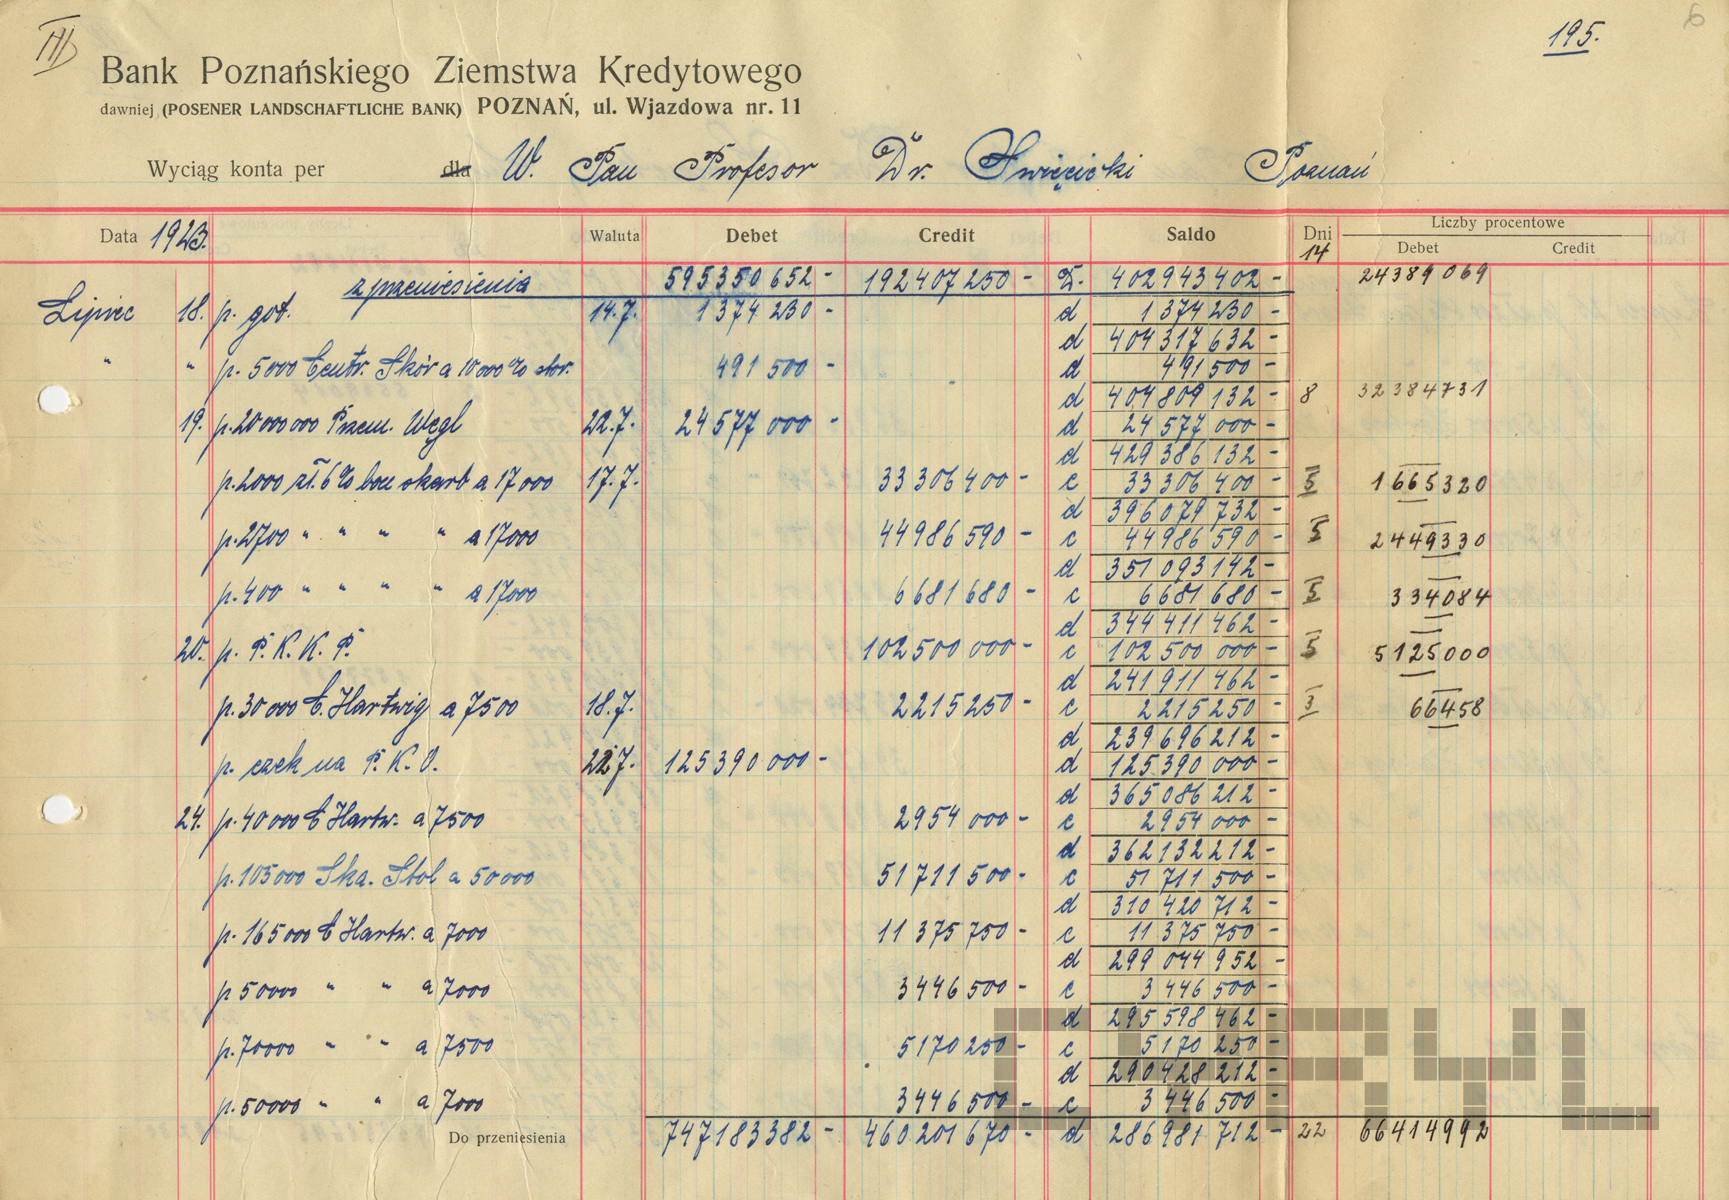 III
195.
6
Bank Poznańskiego Ziemstwa Kredytowego
dawniej (POSENER LANDSCHAFTLICHE BANK) POZNAŃ, ul. Wjazdowa nr. 11
Wyciąg konta per dla W. Pan Profesor Dr. Święcicki Poznań
Data 1923. Waluta Debet Credit Saldo Dni 14 Liczby procentowe Debet Credit
z przeniesienia 595350652 - 192407250 - D. 402943402 - 24389069
Lipiec 18. p. got. 14.7. 1374230 - d 1374230 -
d 404317632 -
" " p. 5000 Centr. Skór a 10000% stor. 491500 - d 491500 -
d 404809132 - 8 32384731
19. p. 20000000 Przem. Węgl 22.7. 24577000 - d 24577000 -
d 429386132 -
p. 2000 zł. 6% bon skarb a 17000 17.7. 33306400 - c 33306400 - 5 1665320
d 396079732 -
p. 2700 " " " " a 17000 44986590 - c 44986590 - 5 2449330
d 351093142 -
p. 400 " " " " a 17000 6681680 - c 6681680 - 5 334084
d 344411462 -
20. p. P. K. K. P. 102500000 - c 102500000 - 5 5125000
d 241911462 -
p. 30000 C. Hartwig a 7500 18.7. 2215250 - c 2215250 - 3 66458
d 239696212 -
p. czek na P. K. O. 22.7. 125390000 - d 125390000 -
d 365086212 -
24. p. 40000 C Hartw. a 7500 2954000 - c 2954000 -
d 362132212 -
p. 105000 Ska. Stol a 50000 51711500 - c 51711500 -
d 310420712 -
p. 165000 C Hartw. a 7000 11375750 - c 11375750 -
d 299044952 -
p 50000 " " a 7000 3446500 - c 3446500 -
d 295598462 -
p. 70000 " " a 7500 5170250 - c 5170250 -
d 290428212 -
p. 50000 " " a 7000 3446500 - c 3446500 -
Do przeniesienia 747183382 - 460201670 - d 286981712 - 22 66414992